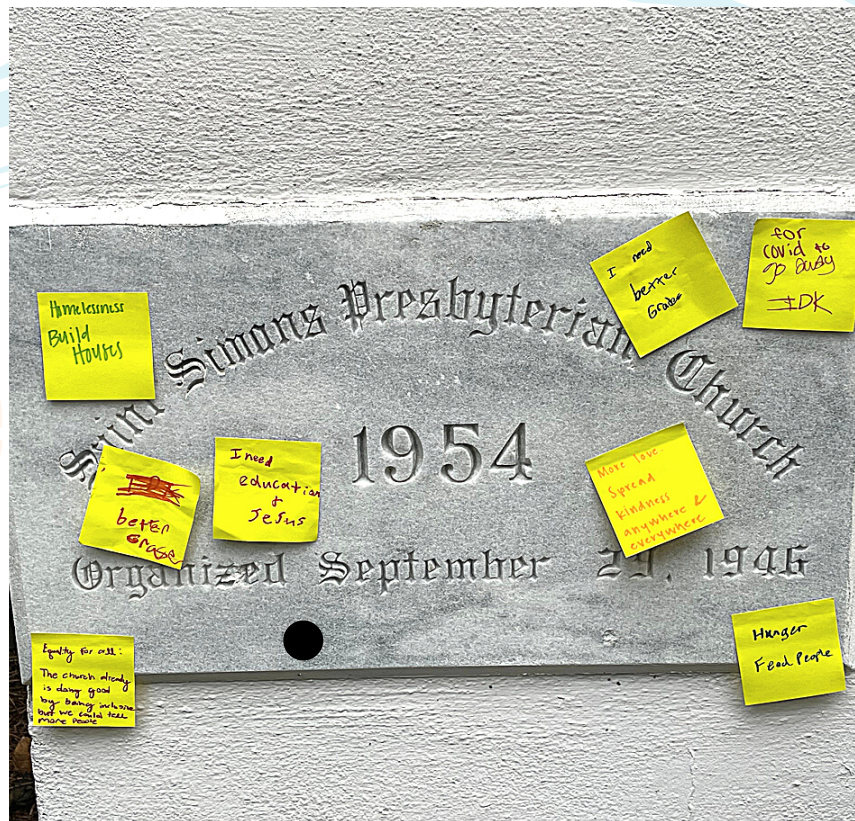 Saint Simons Presbyterian Church
1954
Organized September 29, 1946
Homelessness
Build
Houses
I need
better
Grades
for
covid to
go away
IDK
better
Grades
I need
education
+
Jesus
More love.
Spread
kindness
anywhere &
everywhere
Equality for all:
The church already
is doing good
by being inclusive
but we could tell
more people
Hunger
Feed People